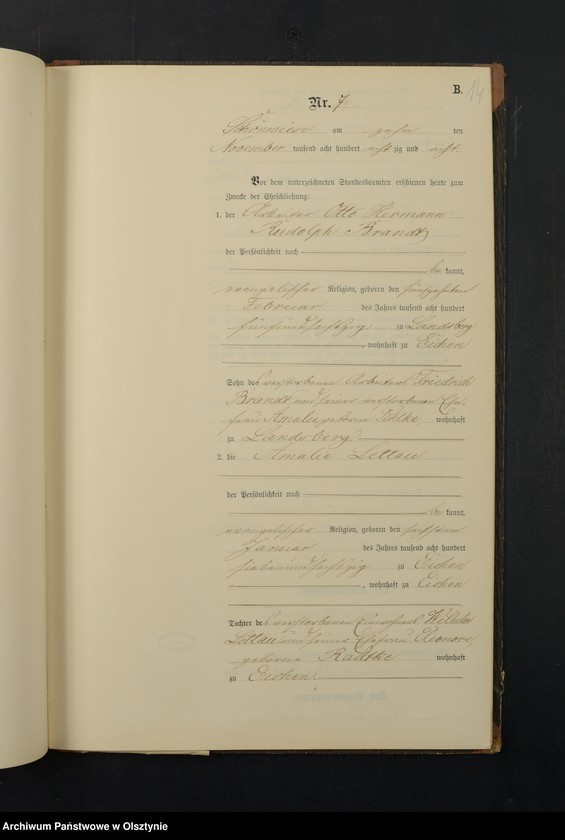 B. 14
Nr. 7.
Schönwiese am zehn ten
November tausend acht hundert acht zig und acht
Vor dem unterzeichneten Standesbeamten erschienen heute zum
Zwecke der Eheschließung:
1. der Arbeiter Otto Hermann
Rudolph Brandt,
der Persönlichkeit nach
be kannt,
evangelischer Religion, geboren den fünfzehnten
Februar des Jahres tausend acht hundert
fünfundsechszig zu Landsberg
, wohnhaft zu Eichen
Sohn des verstorbenen Arbeiters Friedrich
Brandt und seiner verstorbenen Ehe-
frau Amalie geborene wohnhaft
zu Landsberg.
2. die Amalie Lettau
der Persönlichkeit nach
be kannt,
evangelischer Religion, geboren den sechsten
Januar des Jahres tausend acht hundert
siebenundsechszig zu Eichen
, wohnhaft zu Eichen
Tochter des verstorbenen Wilhelm
Lettau und seiner Ehefrau Eleonore,
geborene Radtke wohnhaft
zu Eichen.
Archiwum Państwowe w Olsztynie